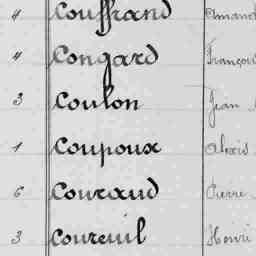 4 Couffrand Amand
4 Congard François
3 Coulon Jean
1 Coupoux Alexis
6 Couraud Pierre
3 Coureuil Henri